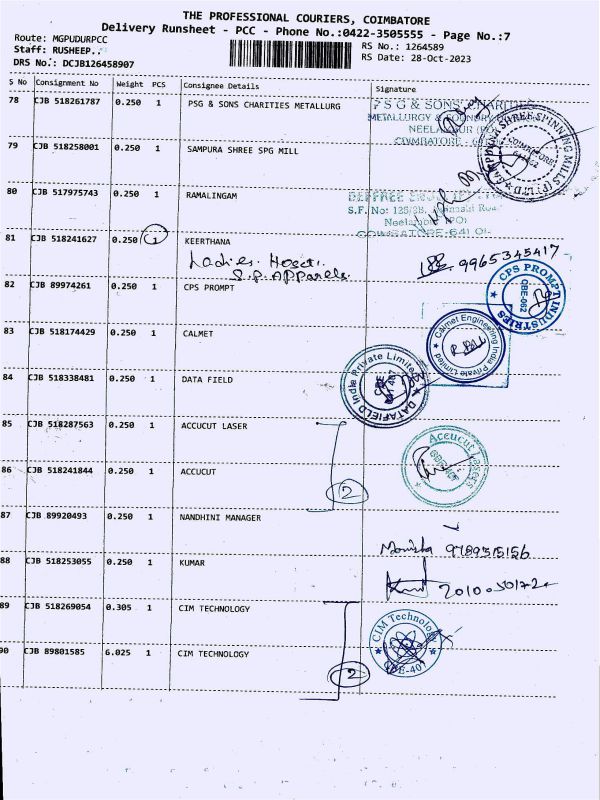 THE PROFESSIONAL COURIERS, COIMBATORE
Delivery Runsheet - PCC - Phone No.:0422-3505555 - Page No.:7
Route: MGPUDURPCC
RS No.: 1264589
Staff: RUSHEEP..
RS Date: 28-Oct-2023
DRS No.: DCJB126458907
S No Consignment No Weight PCS Consignee Details Signature
78 CJB 518261787 0.250 1 PSG & SONS CHARITIES METALLURG
P S G & SONS' CHARITIES
METALLURGY & FOUNDRY
NEELAMBUR (PO)
COIMBATORE
SHREE SPINNING MILLS (P) LTD
COIMBATORE
79 CJB 518258001 0.250 1 SAMPURA SHREE SPG MILL
80 CJB 517975743 0.250 1 RAMALINGAM
S.F. No: 125/3B,
Neelambur (PO)
COIMBATORE-641
81 CJB 518241627 0.250 1 KEERTHANA
Ladies Host.
S.P. APParels
9965345417
82 CJB 89974261 0.250 1 CPS PROMPT
CPS PROMPT INDUSTRIES
CBE-062
83 CJB 518174429 0.250 1 CALMET
Calmet Engineering India Private Limited
84 CJB 518338481 0.250 1 DATA FIELD
DATAFIELD India Private Limited
CBE
85 CJB 518287563 0.250 1 ACCUCUT LASER
Accucut Lasers
86 CJB 518241844 0.250 1 ACCUCUT
2
87 CJB 89920493 0.250 1 NANDHINI MANAGER
Monisha 9789515156
88 CJB 518253055 0.250 1 KUMAR
89 CJB 518269054 0.305 1 CIM TECHNOLOGY
CIM Technology
CBE-407
90 CJB 89801585 6.025 1 CIM TECHNOLOGY
2